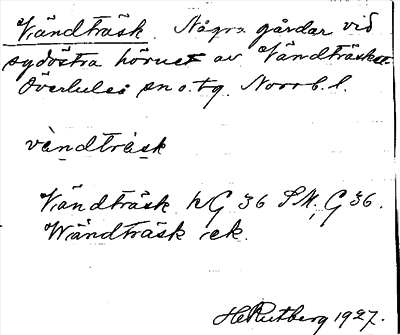 Vändträsk. Några gårdar vid
sydöstra hörnet av Vändträsket
Överluleå sn o. tg. Norrb. l.
vändträsk
Vändträsk hG 36 SM, G 36.
Wändträsk ek.
HRutberg 1927.